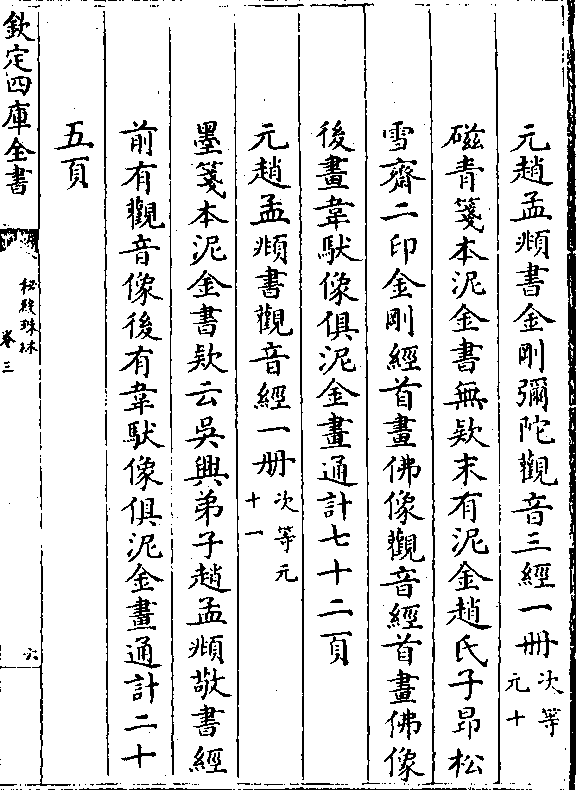 元趙孟頫書金剛彌陀觀音三經一冊次等
元十
磁青箋本泥金書無欵末有泥金趙氏子昂松
雪齋二印金剛經首畫佛像觀音經首畫佛像
後畫韋馱像俱泥金畫通計七十二頁
元趙孟頫書觀音經一冊次等元
十一
墨箋本泥金書欵云吳興弟子趙孟頫敬書經
前有觀音像後有韋馱像俱泥金畫通計二十
五頁
欽定四庫全書
秘殿珠林
卷三
六